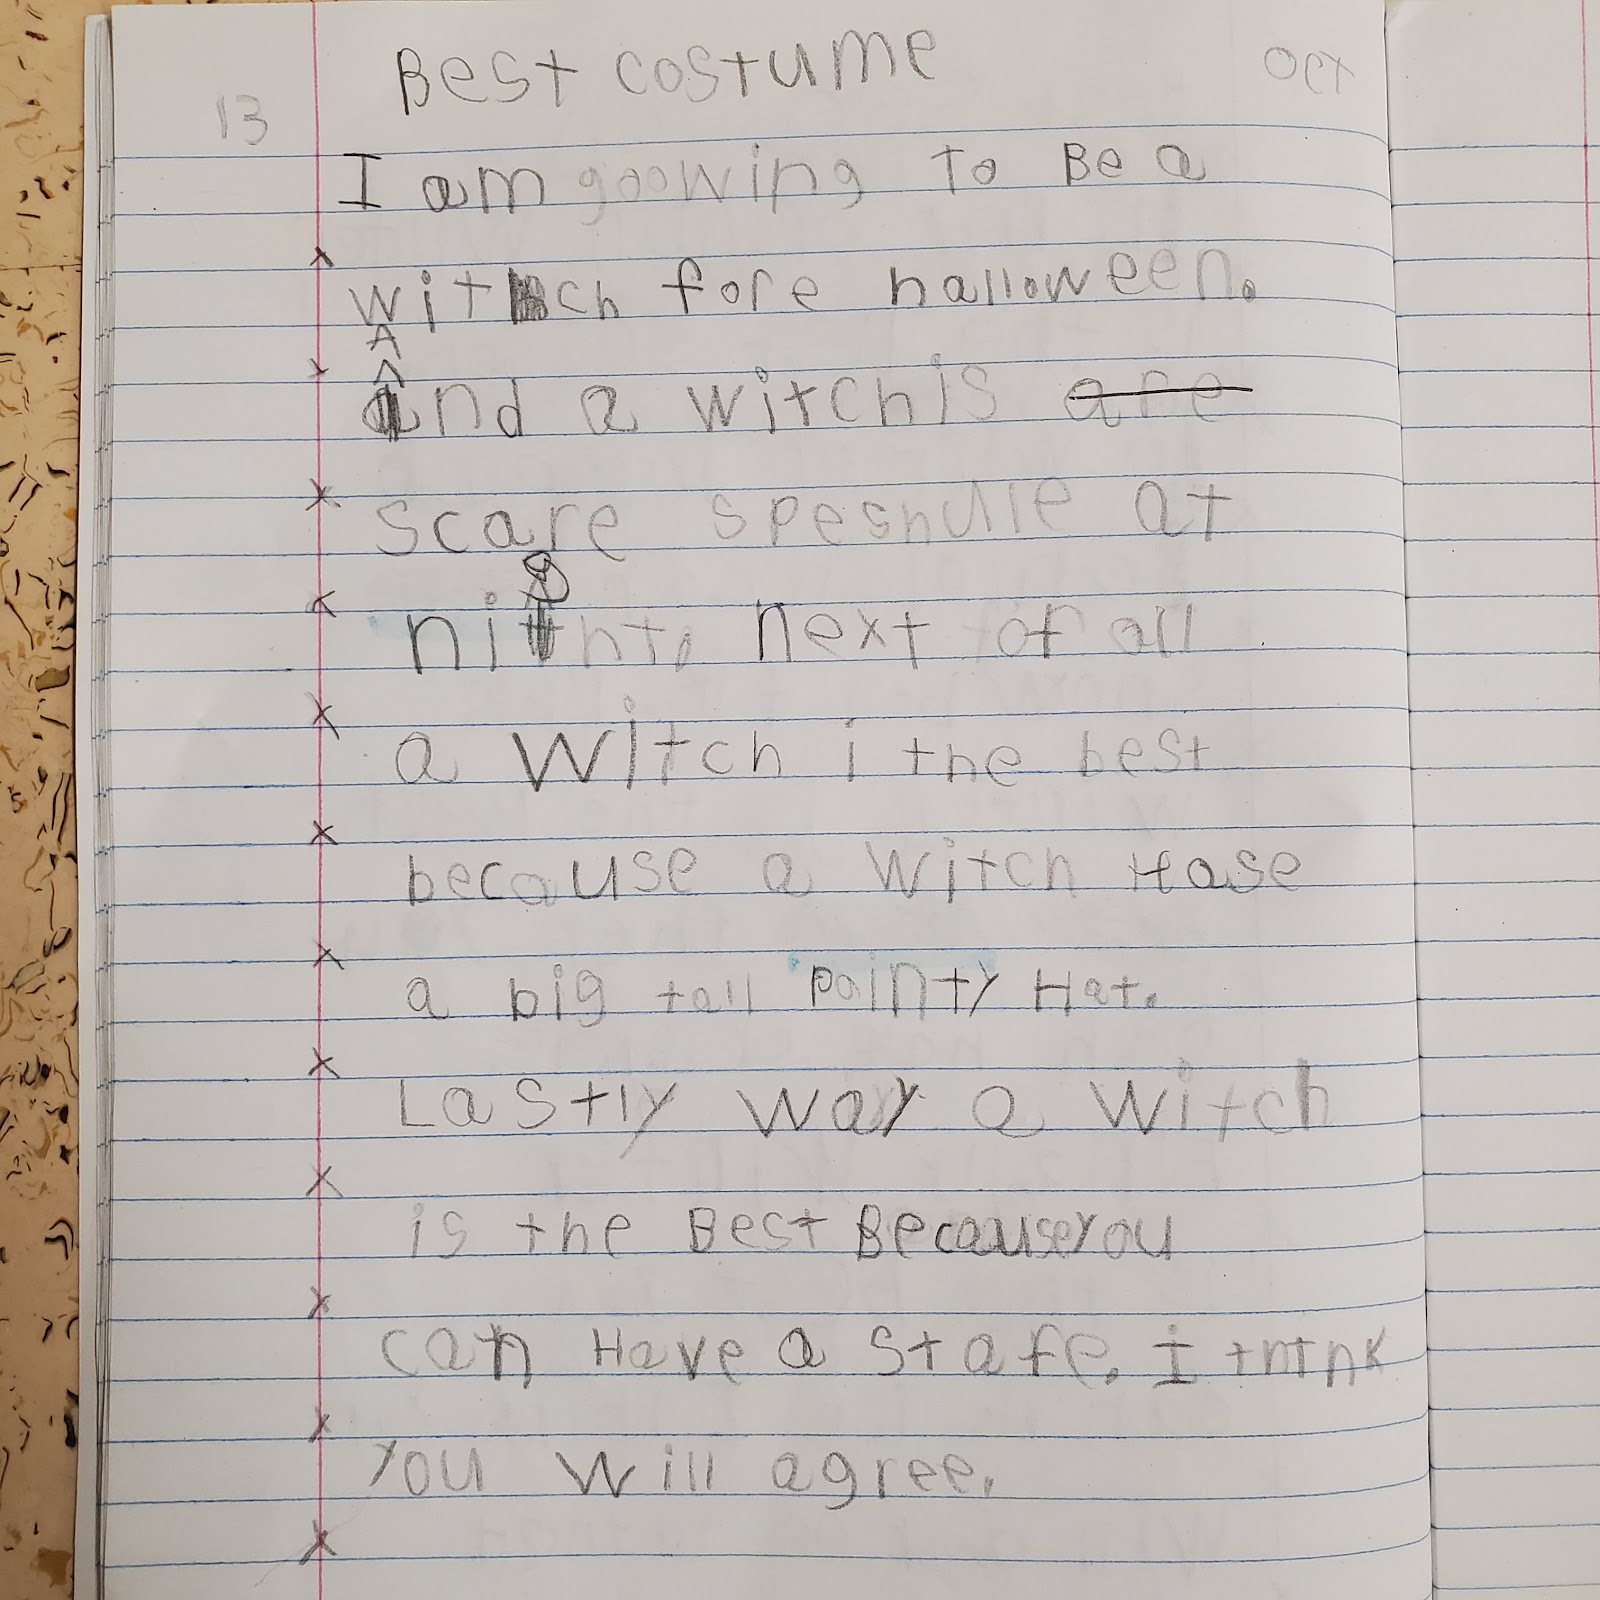 Best costume
Oct
13
I am goowing to Be a
witch fore halloween.
And a witch is are
scare speshulle at
night, next of all
a witch i the best
because a witch Hase
a big tall pointy Hat.
Lastly way a witch
is the Best Because you
can Have a stafe. I think
you will agree.